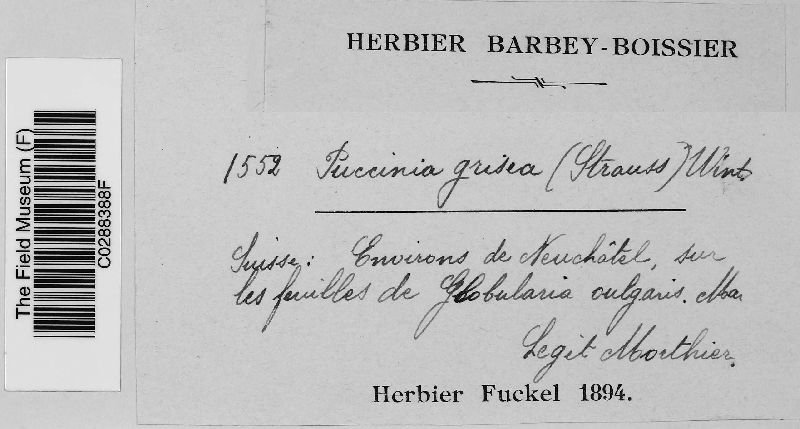 HERBIER BARBEY-BOISSIER
1552 Puccinia grisea (Strauss) Wint.
Suisse: Environs de Neuchâtel, sur
les feuilles de Globularia vulgaris. Mai
Legit Morthier.
Herbier Fuckel 1894.
The Field Museum (F)
C0288388F